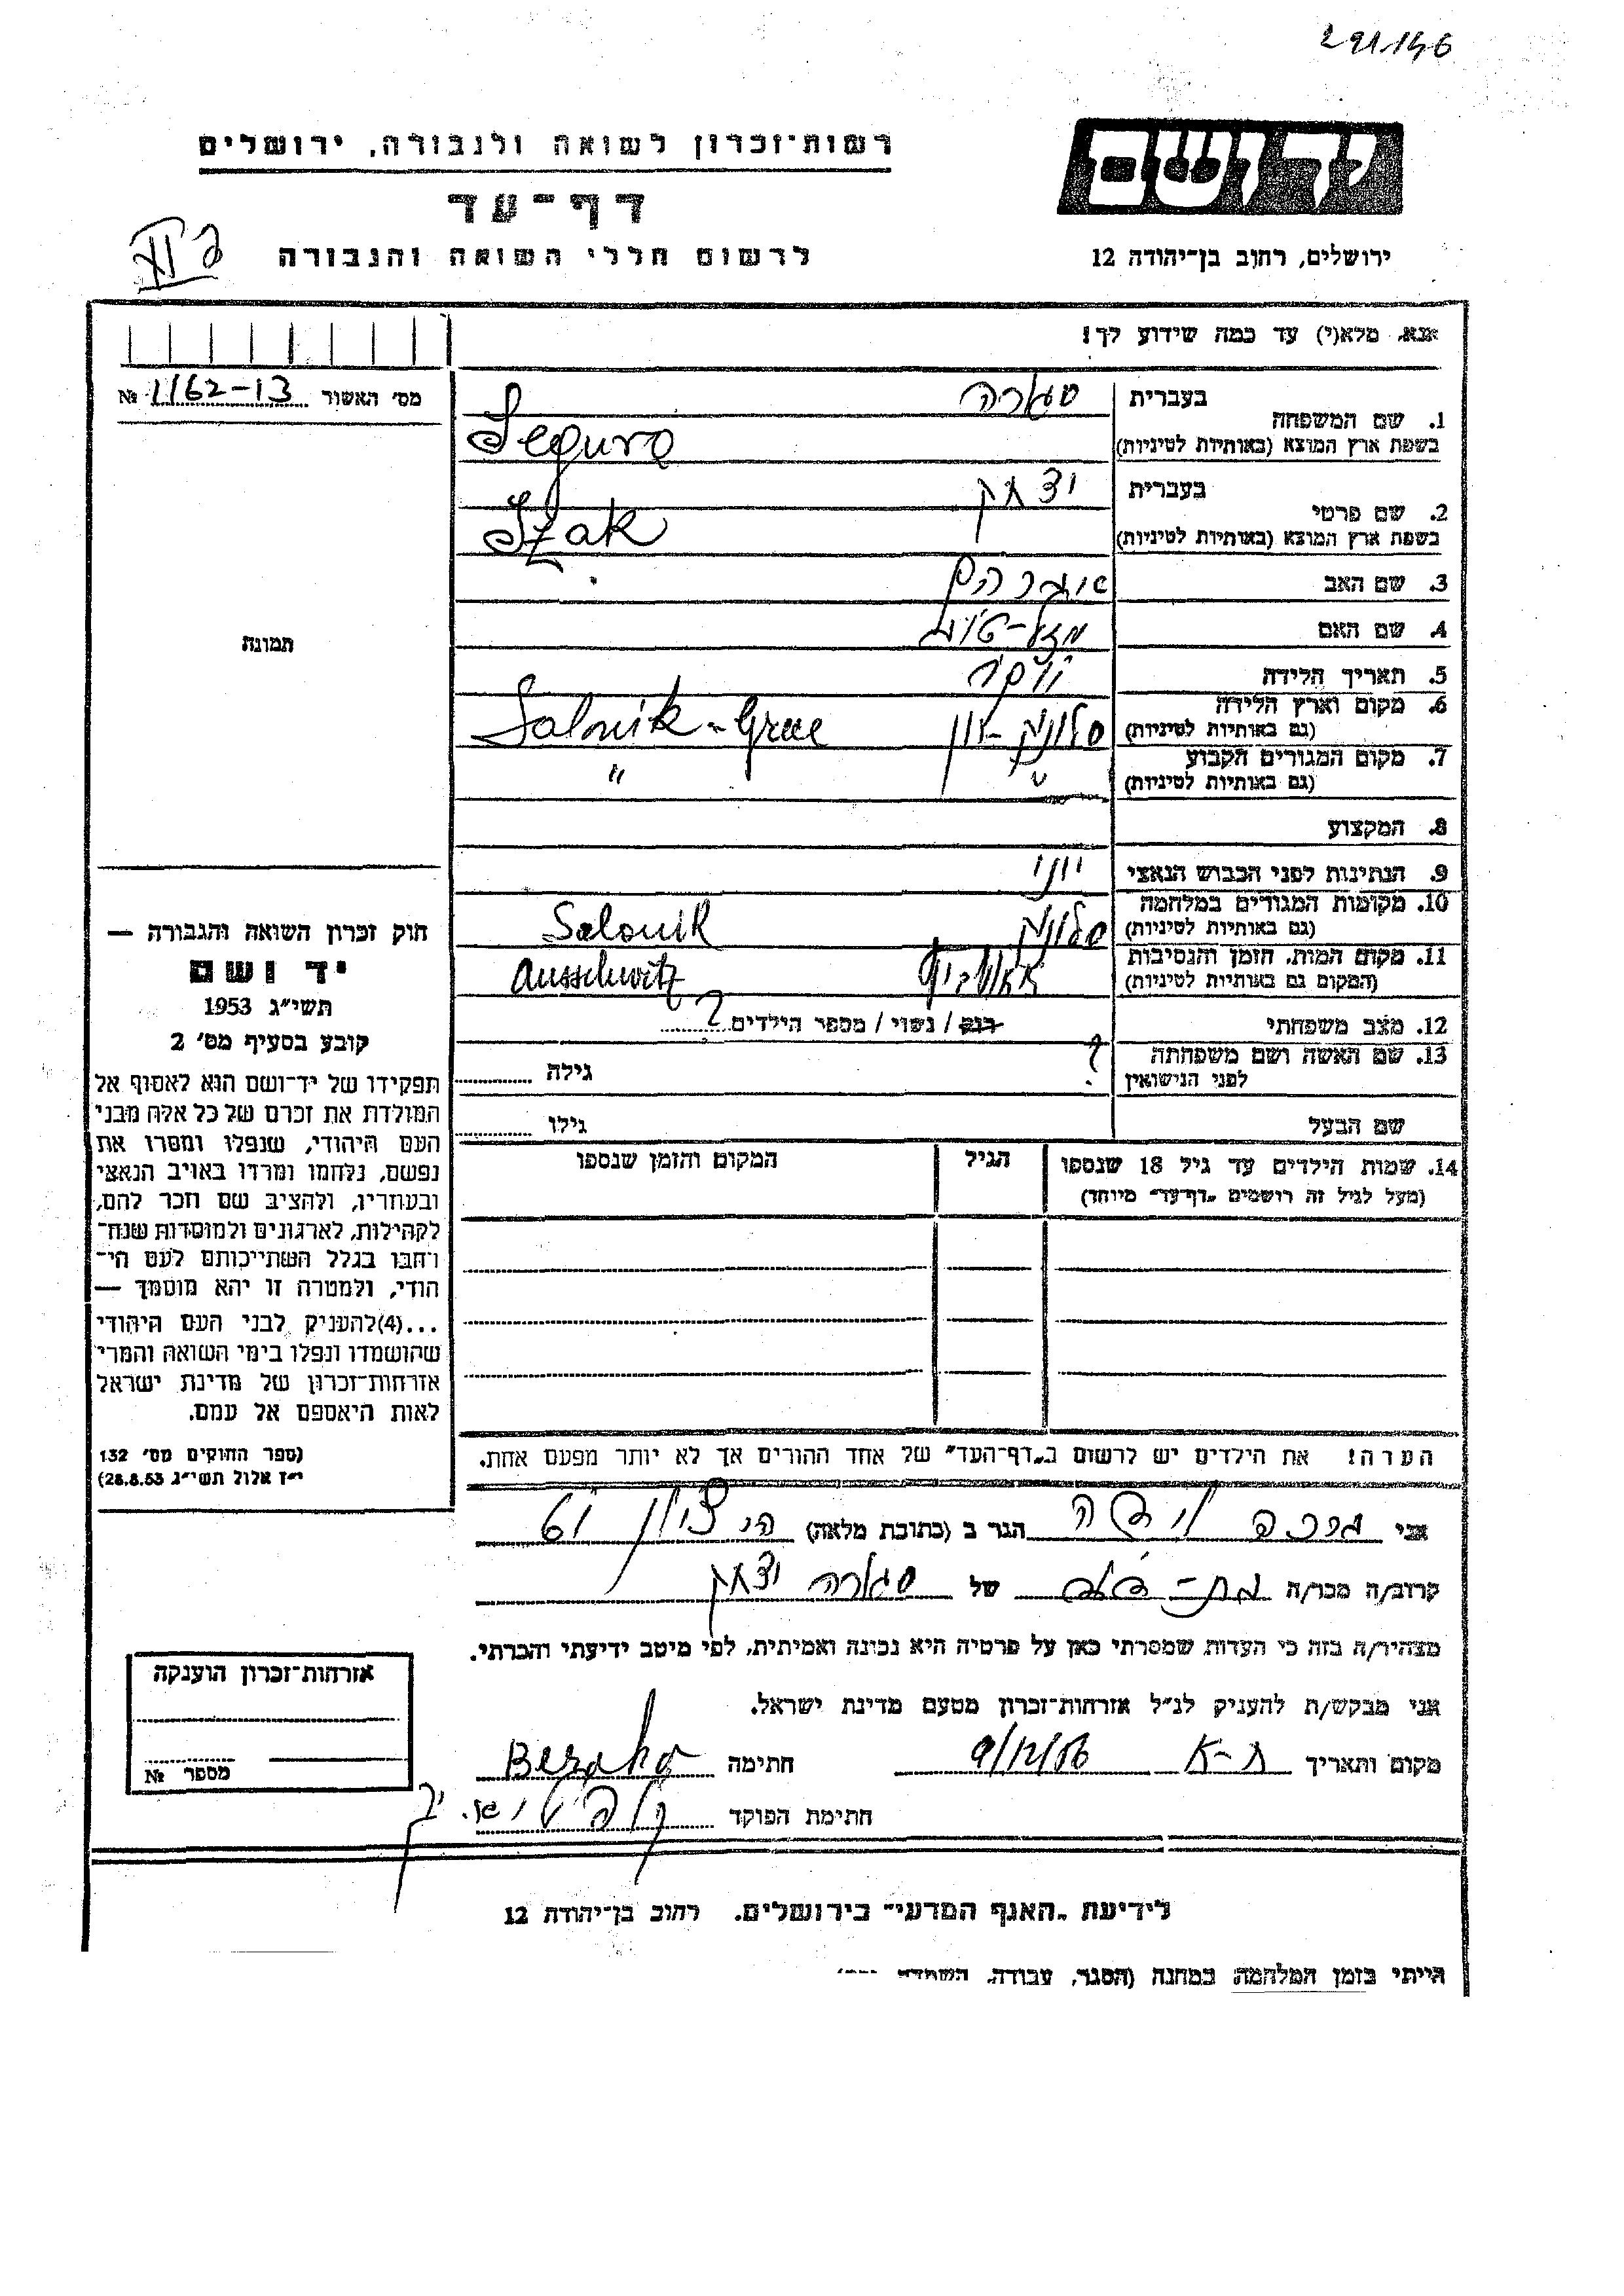 291146
רשות-זכרון לשואה ולגבורה, ירושלים
דף-עד
לרשום חללי השואה והגבורה
יד ושם
ירושלים, רחוב בן-יהודה 12
אנא, מלא(י) עד כמה שידוע לך!
מס' האשור 1162-13 №
1. שם המשפחה
בעברית סגורה
בשפת ארץ המוצא (באותיות לטיניות) Segura
2. שם פרטי
בעברית יצחק
בשפת ארץ המוצא (באותיות לטיניות) Izak
3. שם האב אברהם
4. שם האם מזל-טוב
5. תאריך הלידה
6. מקום וארץ הלידה
(גם באותיות לטיניות) סלוניק-יון Salonik-Grece
7. מקום המגורים הקבוע
(גם באותיות לטיניות) " "
8. המקצוע
9. הנתינות לפני הכבוש הנאצי יוני
10. מקומות המגורים במלחמה
(גם באותיות לטיניות) סלוניק Salonik
11. מקום המות, הזמן והנסיבות
(המקום גם באותיות לטיניות) אאושביץ Ausschwitz
12. מצב משפחתי רווק / נשוי / מספר הילדים ?
13. שם האשה ושם משפחתה
לפני הנישואין ? גילה
שם הבעל גילו
14. שמות הילדים עד גיל 18 שנספו
(מעל לגיל זה רושמים „דף-עד" מיוחד)
הגיל
המקום והזמן שנספו
הערה! את הילדים יש לרשום ב„דף-העד" של אחד ההורים אך לא יותר מפעם אחת.
תמונה
חוק זכרון השואה והגבורה —
יד ושם
תשי"ג 1953
קובע בסעיף מס' 2
תפקידו של יד-ושם הוא לאסוף אל
המולדת את זכרם של כל אלה מבני
העם היהודי, שנפלו ומסרו את
נפשם, נלחמו ומרדו באויב הנאצי
ובעוזריו, ולהציב שם וזכר להם,
לקהילות, לארגונים ולמוסדות שנח-
רחבו בגלל השתייכותם לעם הי-
הודי, ולמטרה זו יהא מוסמך —
...(4)להעניק לבני העם היהודי
שהושמדו ונפלו בימי השואה והמרי
אזרחות-זכרון של מדינת ישראל
לאות היאספם אל עמם.
(ספר החוקים מס' 132
י"ז אלול תשי"ג 28.8.53)
אני ברכה הגר ב (כתובת מלאה)
קרוב/ה מכר/ה בת-דוד של סגורה יצחק
מצהיר/ה בזה כי העדות שמסרתי כאן על פרטיה היא נכונה ואמיתית, לפי מיטב ידיעתי והכרתי.
אני מבקש/ת להעניק לנ"ל אזרחות-זכרון מטעם מדינת ישראל.
מקום ותאריך ת-א 9/12/56 חתימה Beraha
חתימת הפוקד
אזרחות-זכרון הוענקה
מספר №
לידיעת „האגף המדעי" בירושלים, רחוב בן-יהודה 12
הייתי בזמן המלחמה במחנה (הסגר, עבודה, השמדה